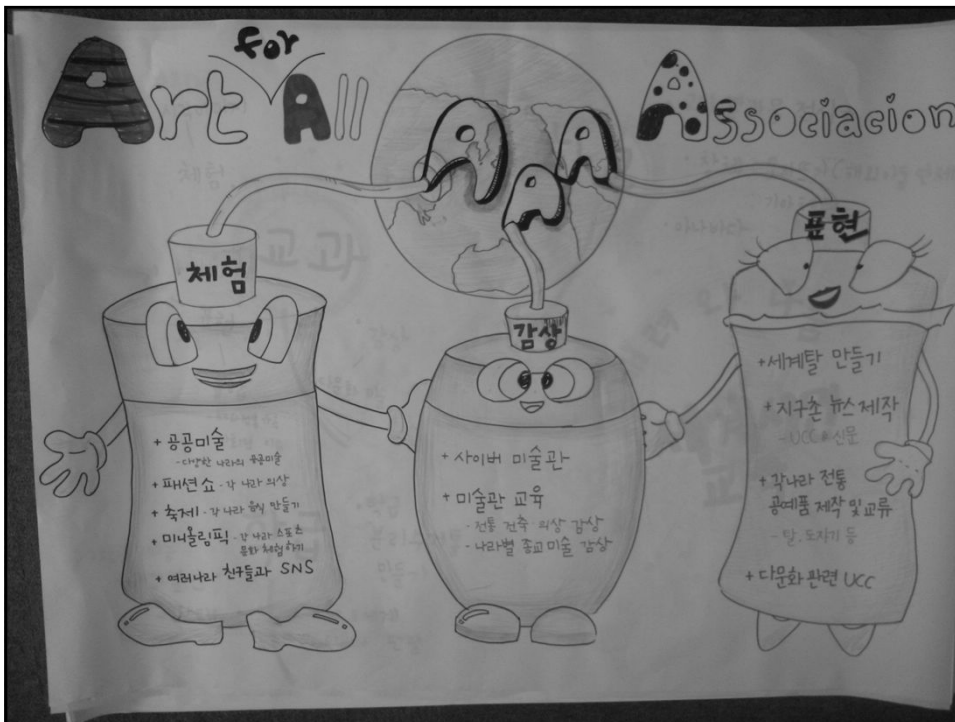 Art for All Associacion
AAA
체험
+ 공공미술
- 다양한 나라의 공공미술
+ 패션쇼 - 각 나라 의상
+ 축제 - 각 나라 음식 만들기
+ 미니올림픽 - 각 나라 스포츠
문화 체험하기
+ 여러나라 친구들과 SNS
감상
+ 사이버 미술관
+ 미술관 교육
- 전통 건축 의상 감상
- 나라별 종교미술 감상
표현
+ 세계탈 만들기
+ 지구촌 뉴스 제작
- UCC 신문
+ 각나라 전통
공예품 제작 및 교류
- 탈, 도자기 등
+ 다문화 관련 UCC